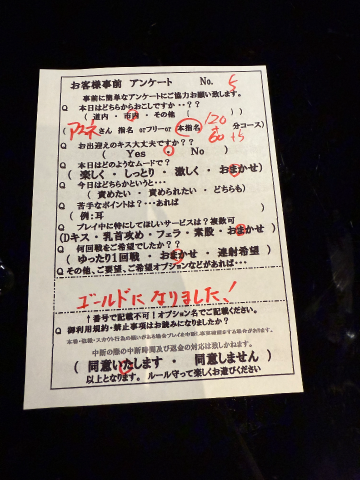 お客様事前 アンケート　No. 5
事前に簡単なアンケートにご協力お願い致します。
Q 本日はどちらからおこしですか・・？？
（ 道内 ・ 市内 ・ その他 （　　　））
（アカネさん 指名 orフリーor 本指名 120 分コース）
60 +5
Q お出迎えのキス大丈夫ですか？？
（ Yes ・ No ）
Q 本日はどのようなムードで？
（ 楽しく ・ しっとり ・ 激しく ・ おまかせ）
Q 今日はどちらかというと・・・
（ 責めたい ・ 責められたい ・ どちらも）
Q 苦手なポイントは？・・・あれば
（ 例：耳　　　）
Q プレイ中に特にしてほしいサービスは？複数可
（Dキス・乳首攻め・フェラ・素股・おまかせ）
Q 何回戦をご希望でしたか？？
（ ゆったり1回戦 ・ おまかせ ・ 連射希望）
Q その他、ご要望、ご希望オプションなどがあれば・・・
ゴールドになりました！
↑番号で記載不可！オプション名でご記載ください。
Q 御利用規約・禁止事項はお読みになりましたか？
中断の際の中断時間及び返金の対応は致しかねます。
（ 同意いたします ・ 同意しません）
以上となります。 ルール守って楽しくお遊びください